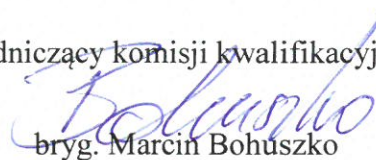 dniczący komisji kwalifikacyj
Bohuszko
bryg. Marcin Bohuszko